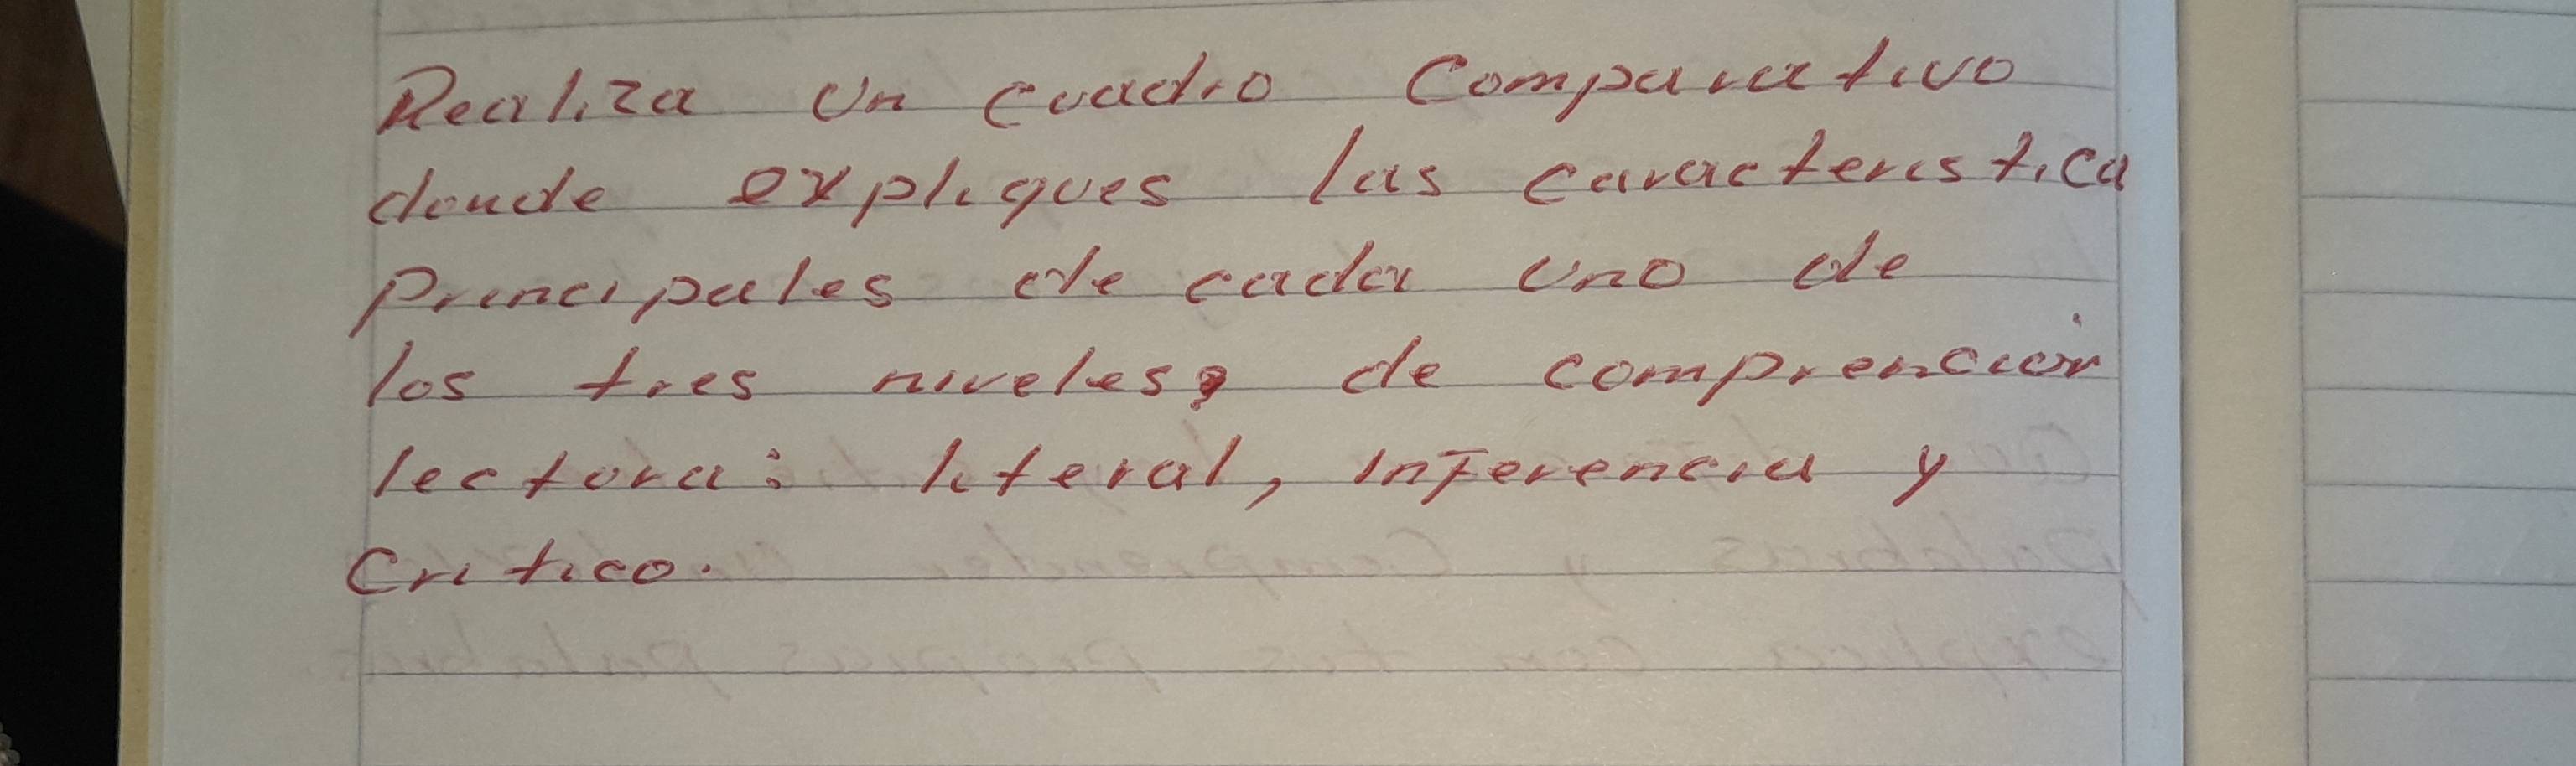 Realiza un cuadro Comparativo
donde expliques las caracteristica
principales de cada uno de
los tres niveles, de comprención
lectora: literal, Inferencia y
Critico.